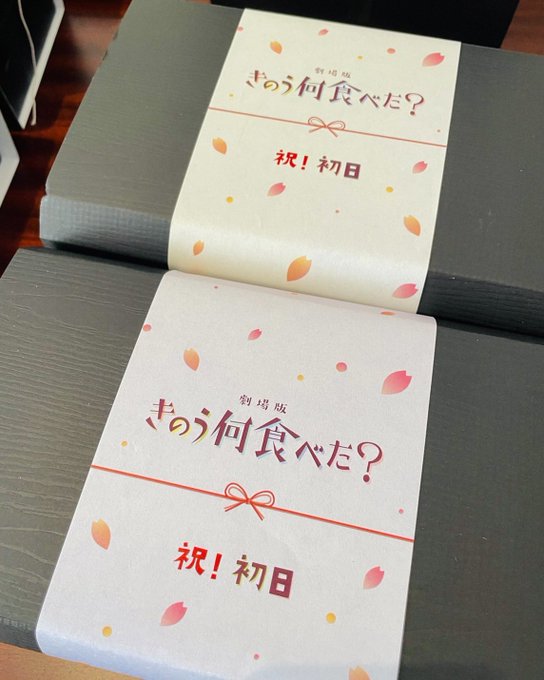 劇場版
きのう何食べた?
祝!初日
劇場版
きのう何食べた?
祝!初日